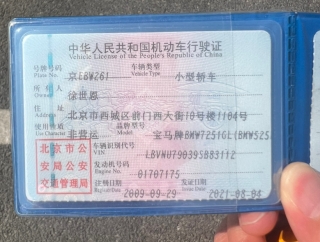 中华人民共和国机动车行驶证
Vehicle License of the People's Republic of China
号牌号码 京EBW261 车辆类型 小型轿车
Plate No. Vehicle Type
所有人 徐世恩
Owner
住址 北京市西城区前门西大街10号楼1104号
使用性质 非营运 品牌型号 宝马牌BMW7251GL(BMW525
北京市公
安局公安
交通管理局
车辆识别代号
VIN LBVNU79039SB83112
发动机号码 01707175
Engine No.
注册日期 2009-09-29 发证日期 2021-08-04